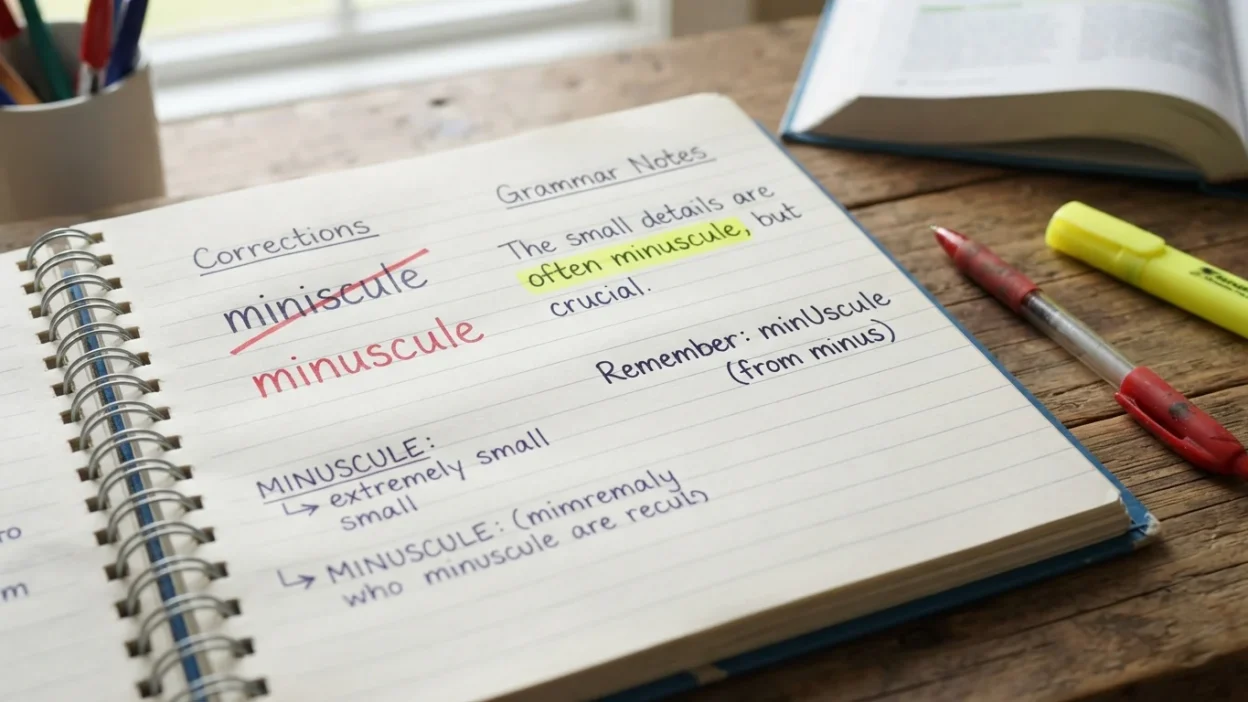 Corrections
miniscule
minuscule
MINUSCULE:
↳ extremely small
small
↳ MINUSCULE: (mimremaly
who minuscule are recul
Grammar Notes
The small details are
often minuscule, but
crucial.
Remember: minUscule
(from minus)
ro
m